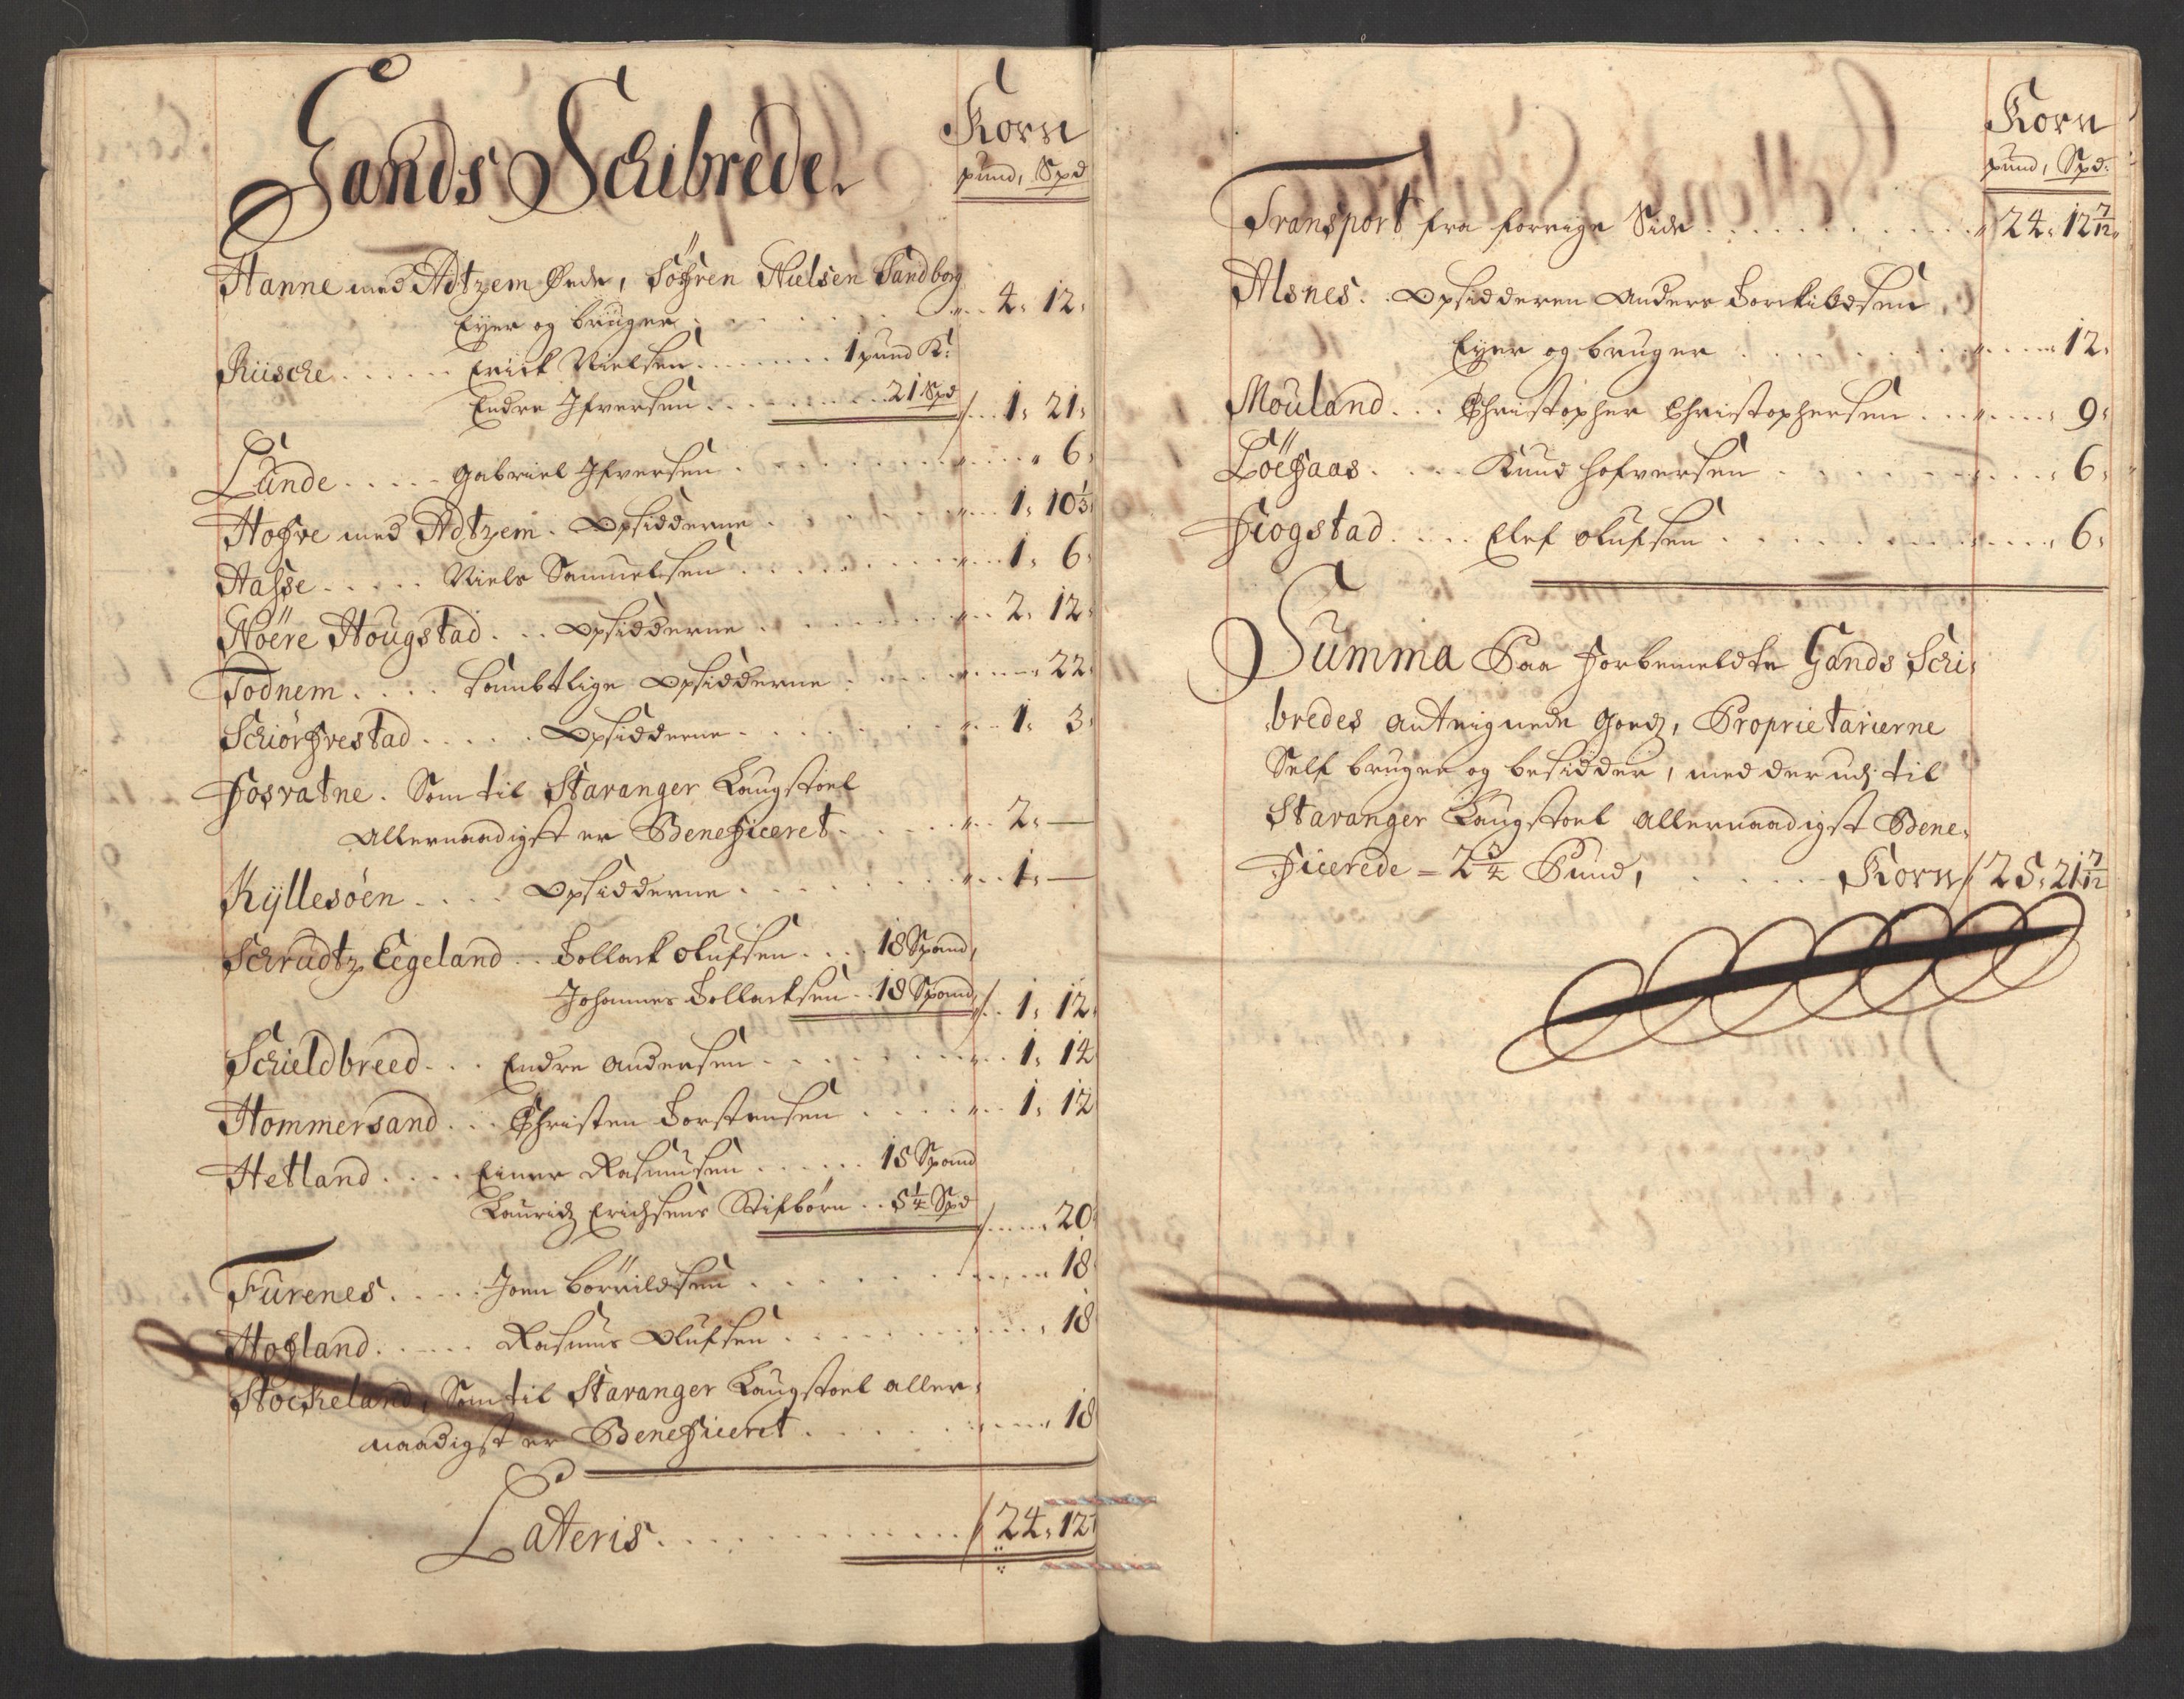 Gands Schibrede.
Korn
pund, Spd
Hanne med Adtzem Øede, Søfren Nielsen Sandborg
Eyer og bruger . . . 4, 12,
Riische . . . Erick Nielsen . . . 1 pund K:
Endre Ifversen . . . 21 Spd / . . 1, 21,
Lunde . . . Gabriel Ifversen . . . 6,
Hofve med Adtzem . Opsidderne . . . 1, 10 1/3,
Hasse . . . Niels Samuelsen . . . 1, 6,
Nöere Hougstad . . . Opsidderne . . . 2, 12,
Todnem . . . Sambtlige Opsidderne . . . 22,
Schiörfvestad . . . Opsidderne . . . 1, 3,
Fosvatne . Som til Stavanger Laugstoel
Allernaadigst er Beneficeret . . . 2, —
Kÿllesöen . . . Opsidderne . . . 1, —
Schrudtz Eegeland . . Tollack Olufsen . . . 18 Spand,
Johannes Tollacksen . . 18 Spand, / . . 1, 12,
Schieldbreed . . . Endre Andersen . . . 1, 14
Hommersand . . . Christen Torstensen . . . 1, 12
Hetland . . . Einer Rasmusen . . . 15 Spand
Lauridz Erichsens Stifbörn . . 5 1/4 Spd / . . . 20,
Furenes . . . Joen Börrildsen . . . 18
Hogland . . . Rasmus Olufsen . . . 18
Stockeland, Som til Stavanger Laugstoel aller,
naadigst er Beneficeret . . . 18
Lateris . . . / 24, 12
Korn
pund, Spd:
Transport fra forrige Side . . . 24, 12 7/12,
Alsnes . . Opsidderen Anders Torkildsen
Eyer og bruger . . . 12,
Mouland . . . Christopher Christophersen . . . 9,
Löehaas . . . Knud Hofversen . . . 6,
Fiogstad . . . Elef Olufsen . . . 6,
Summa Paa forbemeldte Gands Schi,
bredes Anteignede Goedz, Proprietarierne
Self bruger og besidder, med der udj til
Stavanger Laugstoel Allernaadigst Bene,
ficerede = 2 3/4 Pund, . . . Korn / 25, 21 7/12